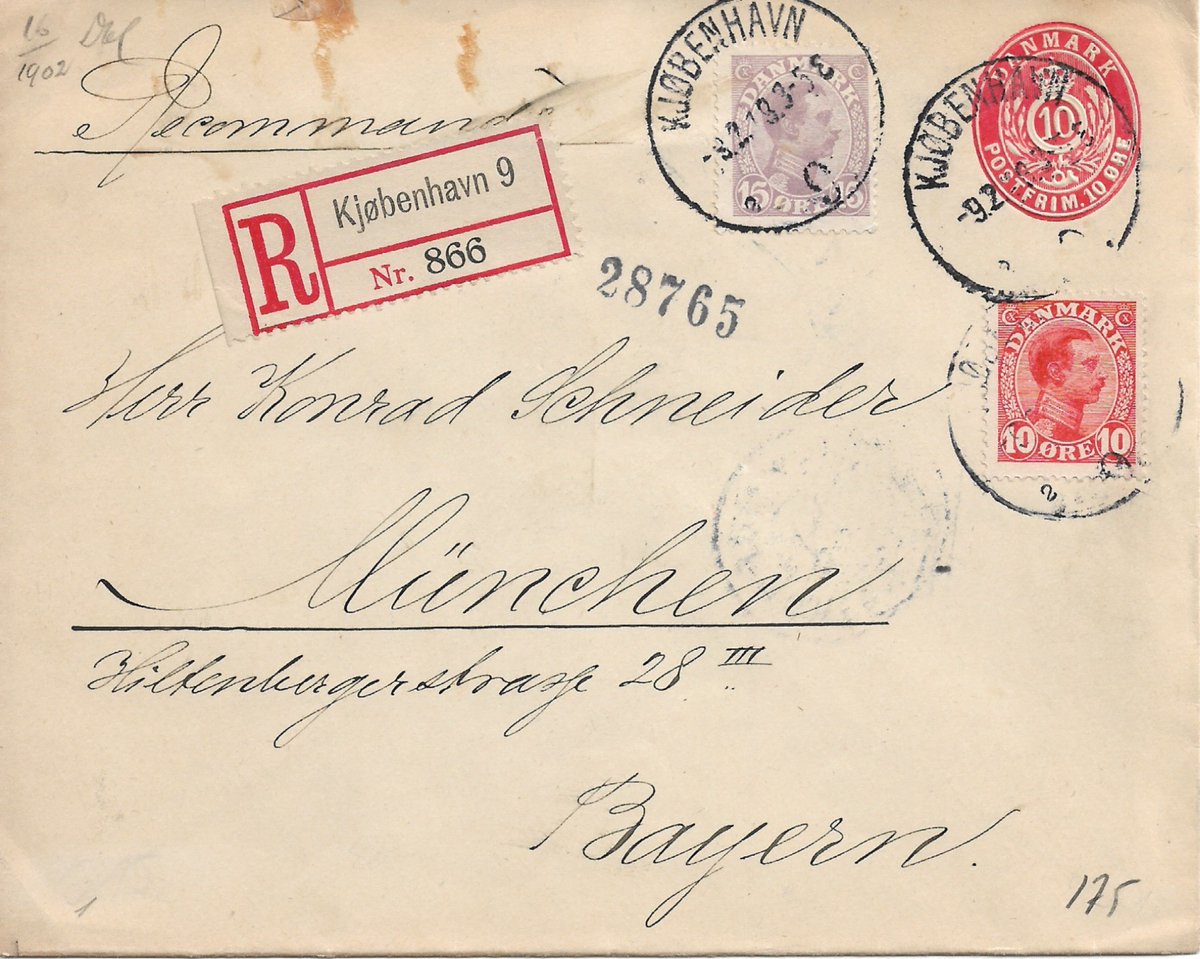 16
1902
Recommandé
KJØBENHAVN
-9.2.18.3-5E
2
DANMARK
15 ØRE 15
KJØBENHAVN
-9.2
2
DANMARK
10
POSTFRIM. 10 ØRE
R
Kjøbenhavn 9
Nr. 866
28765
DANMARK
10 ØRE 10
2
Herr Konrad Schneider
München
Hiltenbergerstrasse 28 III
Bayern.
175
1